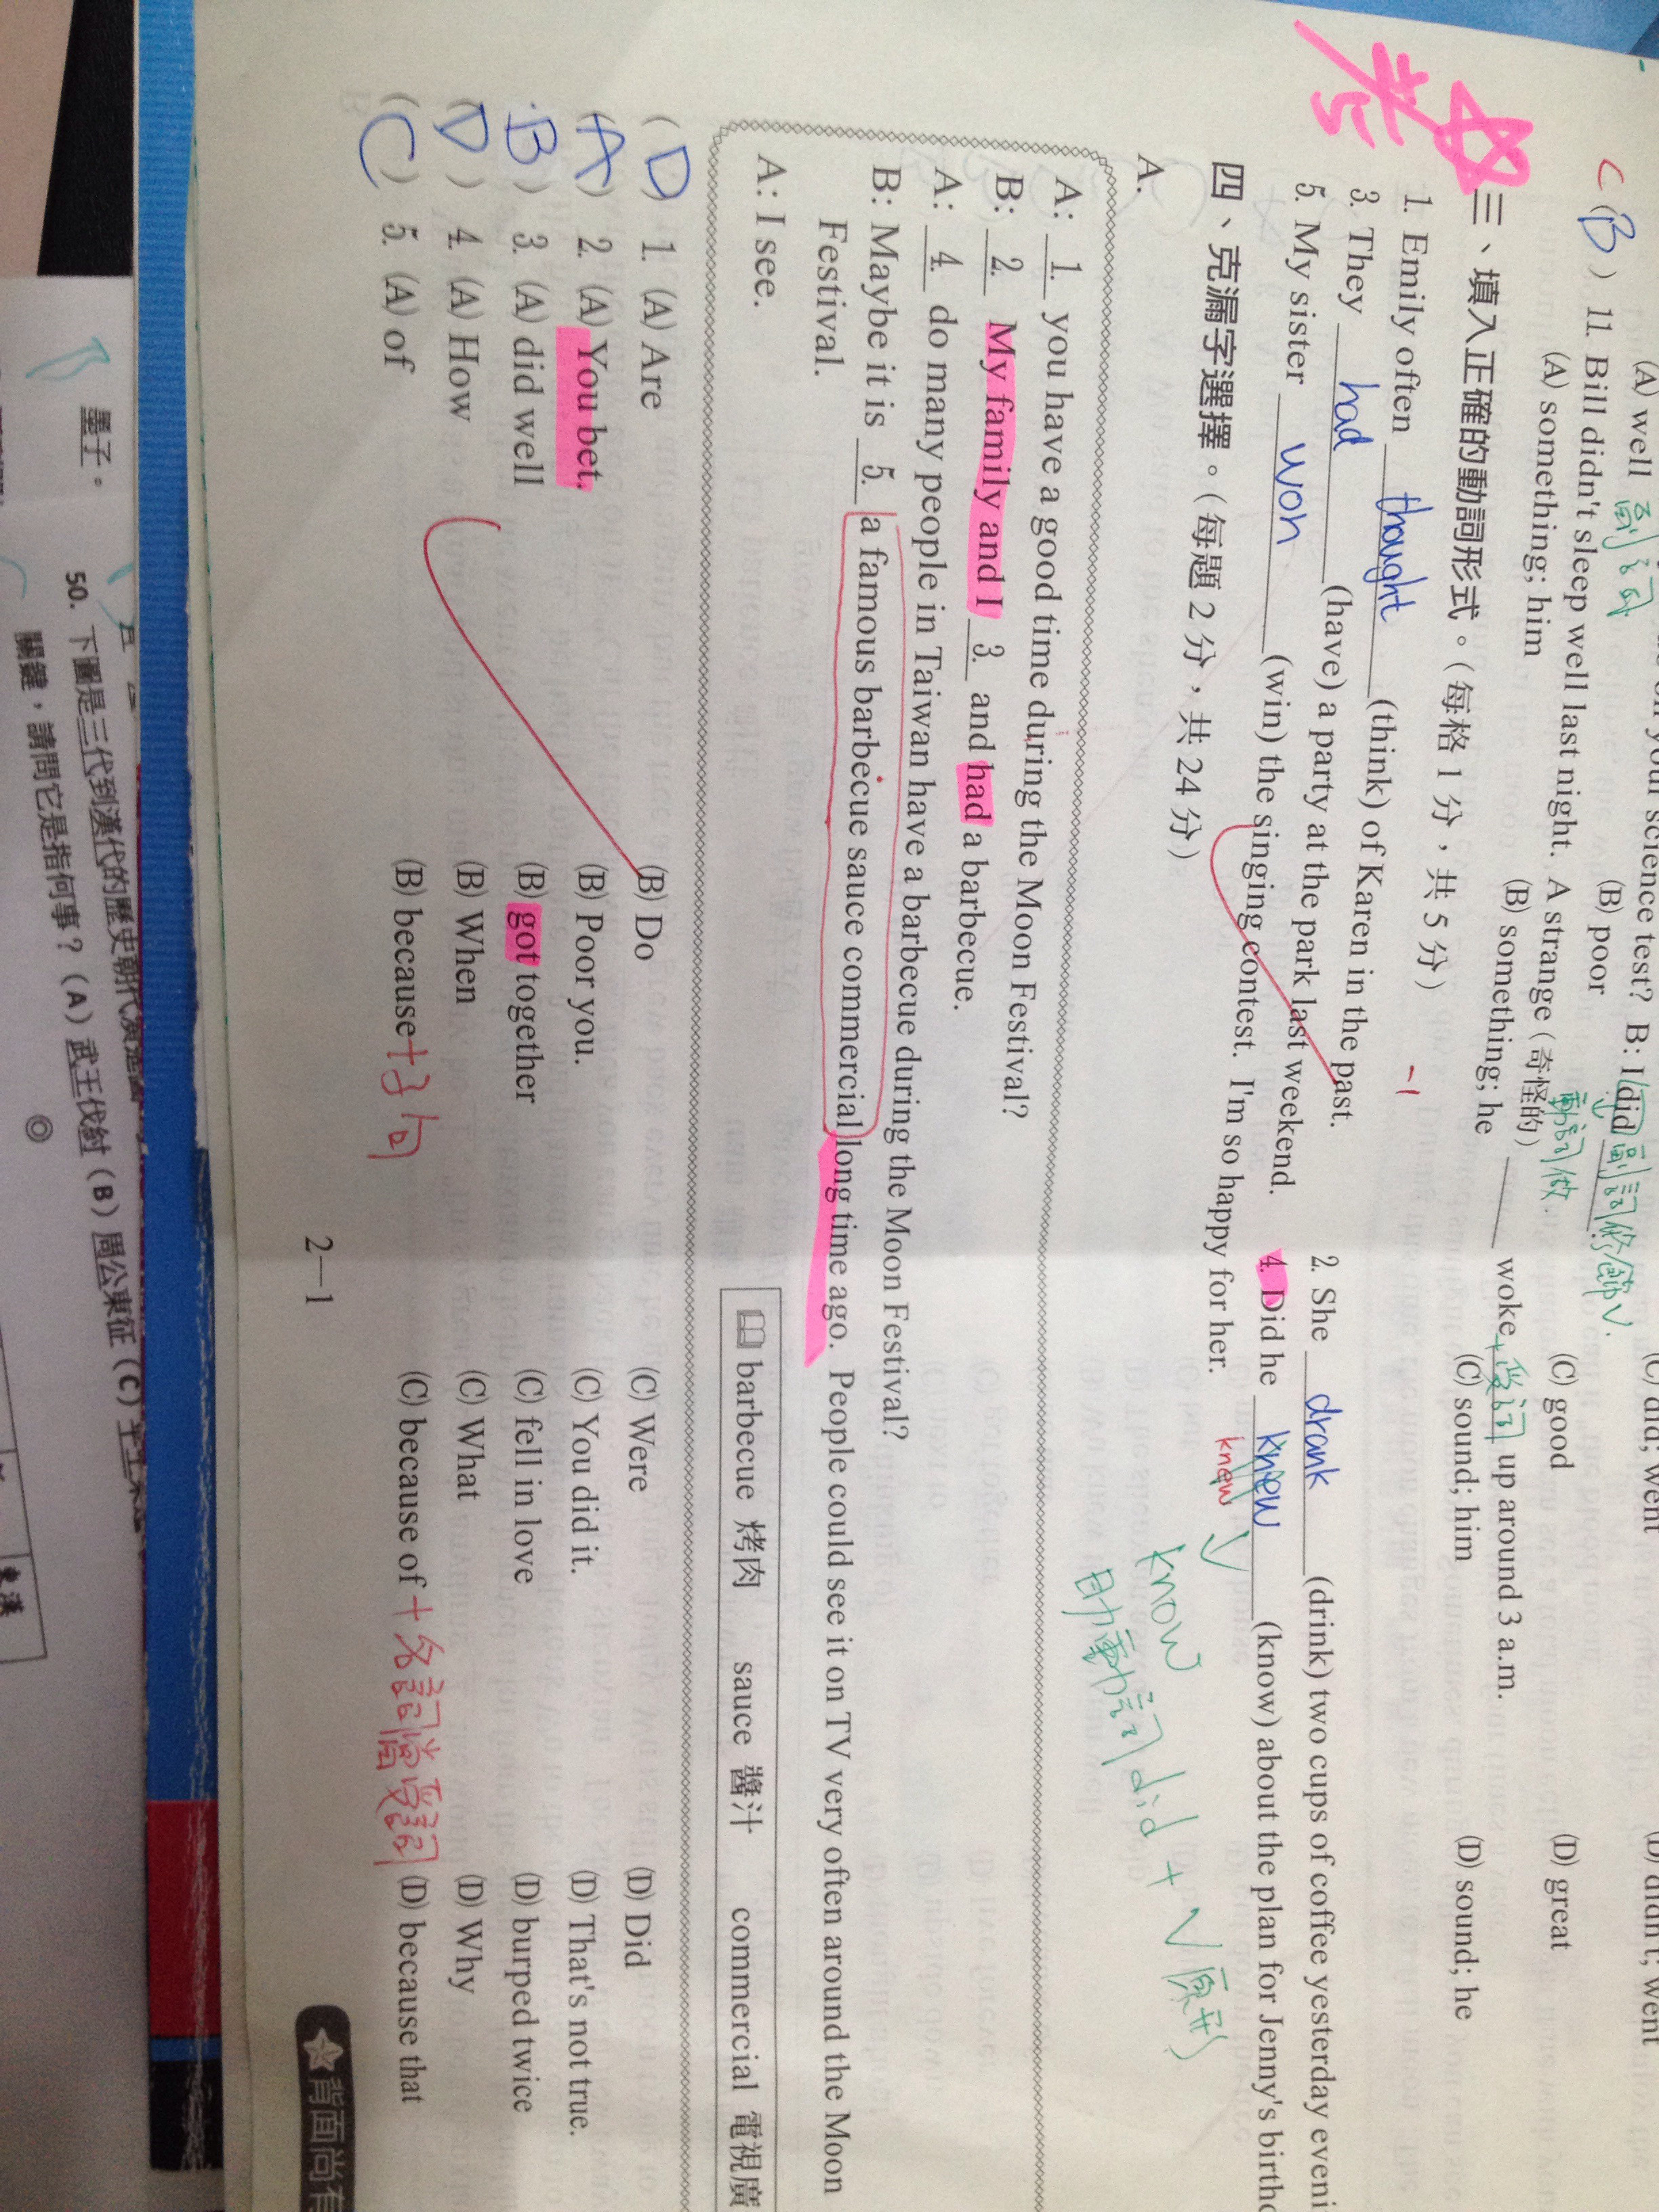 (A) well 副詞 (B) poor (C) good (D) great
C (B) 11. Bill didn't sleep well last night. A strange (奇怪的) ____ woke up around 3 a.m.
(A) something; him (B) something; he (C) sound; him (D) sound; he
考
三、填入正確的動詞形式。(每格 1 分,共 5 分) -1
1. Emily often thought (think) of Karen in the past. 2. She drank (drink) two cups of coffee yesterday eveni
3. They had (have) a party at the park last weekend. 4. Did he knew (know) about the plan for Jenny's birthd
knew
know
助動詞 did + V原形
5. My sister won (win) the singing contest. I'm so happy for her.
四、克漏字選擇。(每題 2 分,共 24 分)
A.
A: 1. you have a good time during the Moon Festival?
B: 2. My family and I 3. and had a barbecue.
A: 4. do many people in Taiwan have a barbecue during the Moon Festival?
B: Maybe it is 5. a famous barbecue sauce commercial long time ago. People could see it on TV very often around the Moon
Festival.
A: I see.
barbecue 烤肉 sauce 醬汁 commercial 電視廣
(D) 1. (A) Are (B) Do (C) Were (D) Did
(A) 2. (A) You bet. (B) Poor you. (C) You did it. (D) That's not true.
(B) 3. (A) did well (B) got together (C) fell in love (D) burped twice
(D) 4. (A) How (B) When (C) What (D) Why
(C) 5. (A) of (B) because+子句 (C) because of + 名詞當受詞 (D) because that
2—1
背面尚有
墨子。
50. 下圖是三代到漢代的歷史朝代演進圖
關鍵,請問它是指何事?(A) 武王伐紂 (B) 周公東征 (C)
◎
東漢